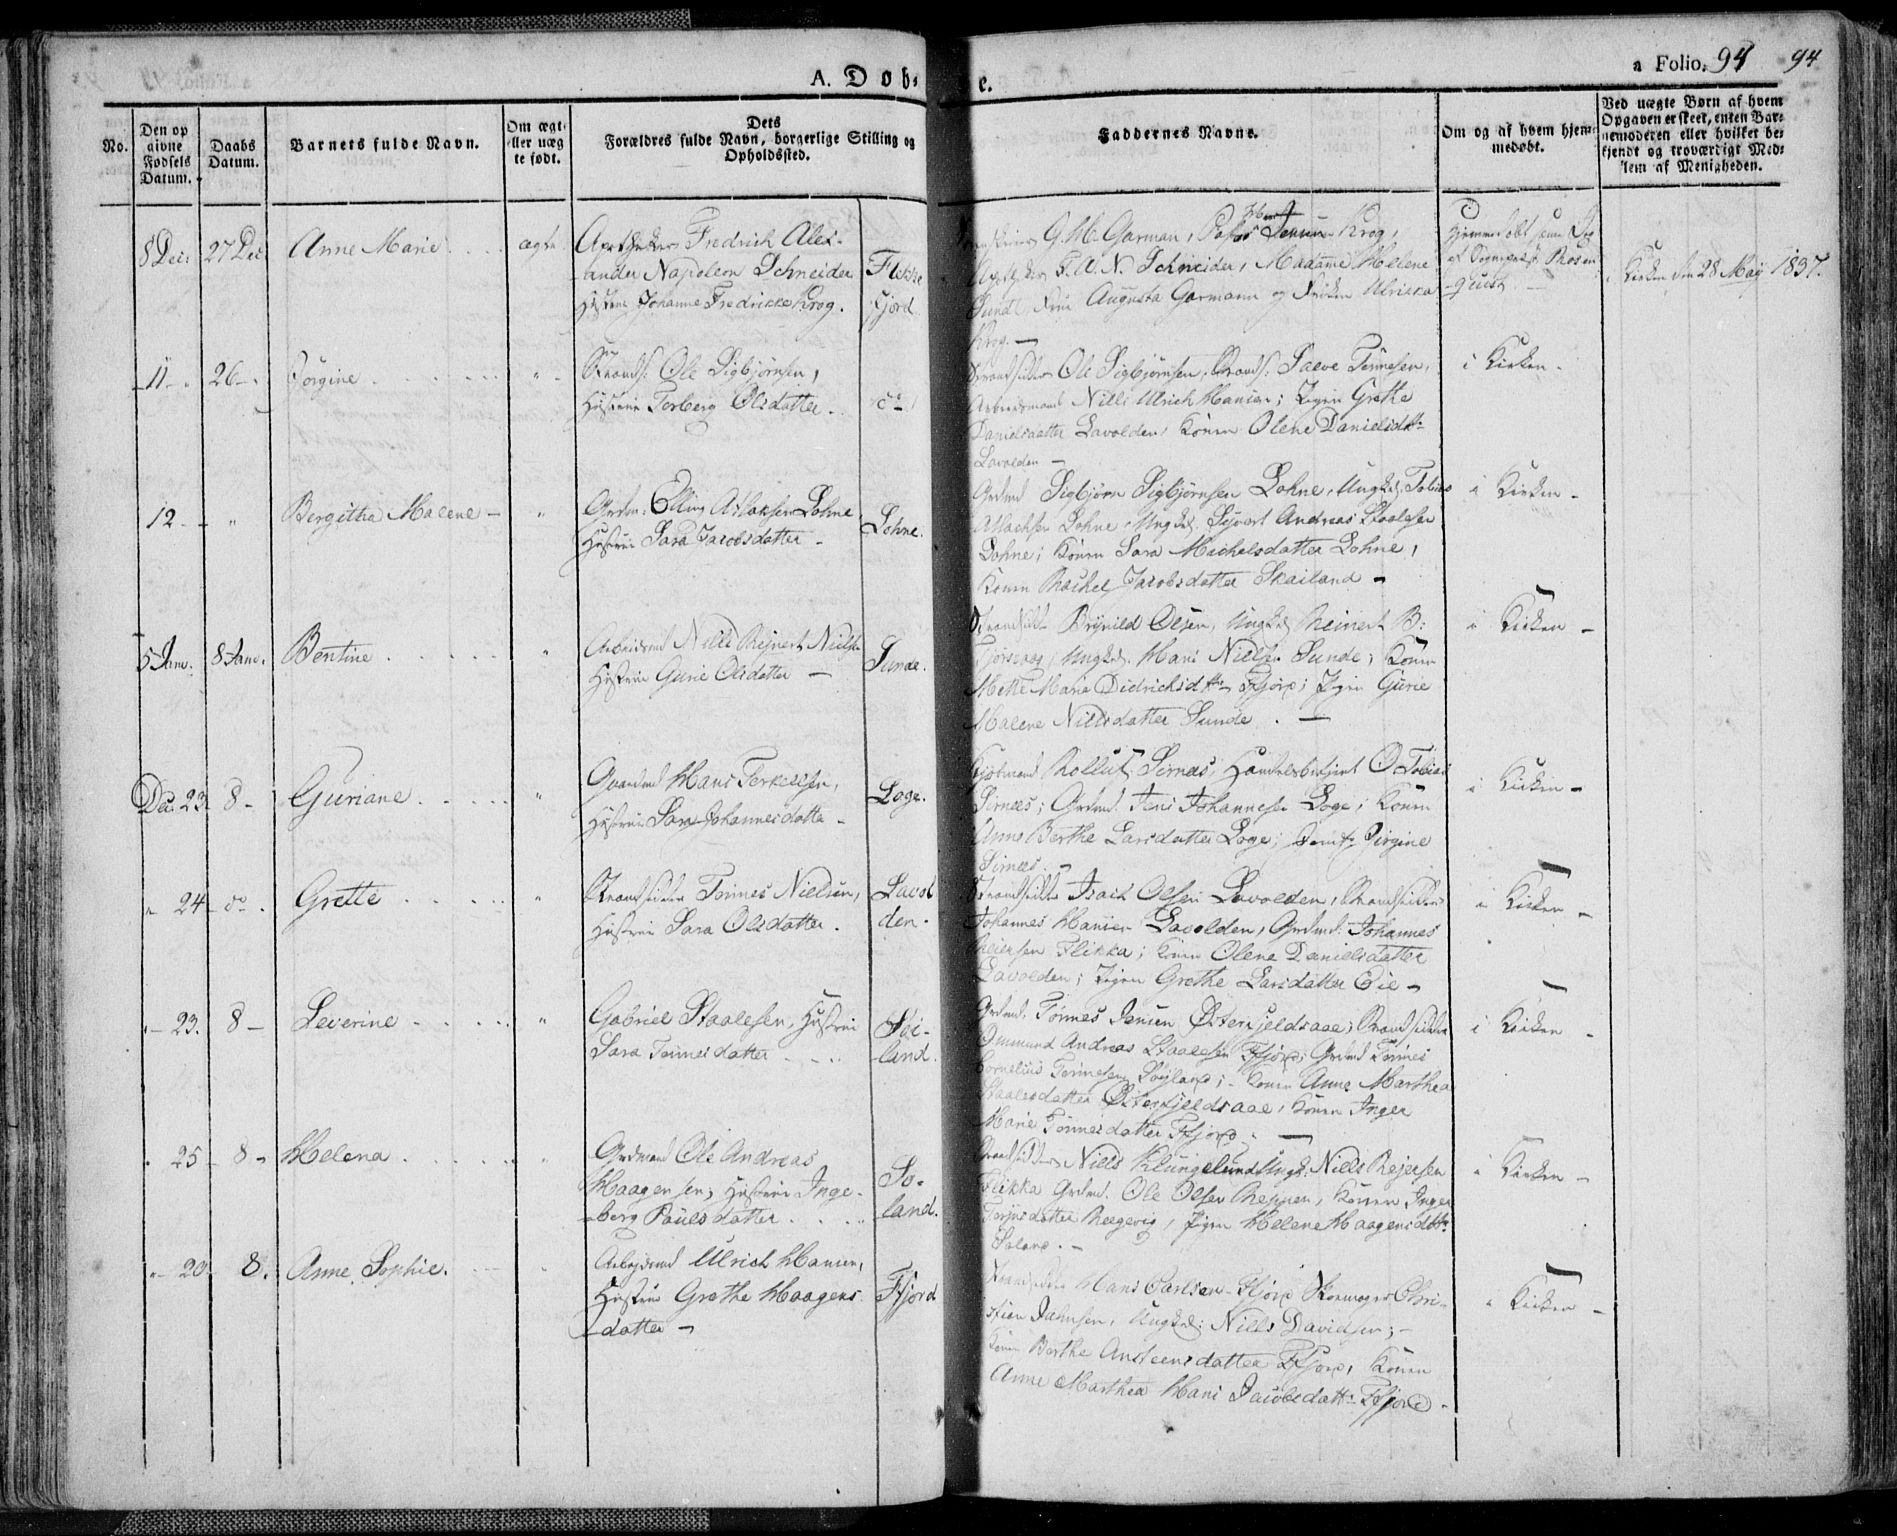 A. Døb-
e.
a Folio. 94 94
No.
Den op
givne
Fødsels
Datum.
Daabs
Datum.
Barnets fulde Navn.
Om ægt-
eller uæg
te født.
Dets
Forældres fulde Navn, borgerlige Stilling og
Opholdssted.
Faddernes Navne.
Om og af hvem hjem-
medøbt.
Ved uægte Børn af hvem
Opgaven er skeet, enten Bar-
nemoderen eller hvilket be-
kjendt og troværdigt Med-
lem af Menigheden.
8 Dec: 27 Dec Anne Marie . . ægte
Apotheker Fredrich Alex-
ander Napoleon Schneider
Hustrue Johanne Fredrikke Krog.
Flekke
fjord
G. H. Garman, Krog,
Apotheker F. A. N. Schneider, Madame Helene
Sund, Frue Augusta Garmann og Frøken Ulrikka
Krog. —
Hjemmedøbt
Rosen-
quist. —
Kirken den 28 Maij 1837.
11 26 Jørgine . . .
Strands: Ole Sigbjørnsen,
Hustrue Torberg Olsdatter.
do
Strandsidder Ole Sigbjørnsen, Strands: Tønnesen,
Arbeidsmand Nills Ulrich Hansen; Pigen Grethe
Danielsdatter Lavolden, Konen Olene Danielsdtr
Lavolden —
i Kirken.
12 " Bergitha Malene — "
Grdm: Elling Aslaksen Lohne
Hustrue Sara Jacobsdatter —
Lohne.
Grdmd Sigbjørn Sigbjørnsen Lohne, Ungkrl. Tobias
Aslachsen Lohne, Ungkrl. Sivert Andreas Staalesen
Lohne; Konen Sara Michelsdatter Lohne,
Konen Rachel Jacobsdatter Skailand —
i Kirken —
5 Jan. 8 Jan. Bentine . . . "
Arbeidsmd Nills Rejnert Nielsen
Hustrue Gurie Olsdatter —
Sunde.
Strandsidd Brynild Olsen, Ungkrl Reinert B:
Ungkrl. Hans Nielsen Sunde; Konen
Mette Maria Didrichsdtr Ffjord; Pigen Gurie
Malene Nillsdatter Sunde . —
i Kirken —
De: 23 8 — Guriane . . . "
Gaardmd Hans Terkelsen,
Hustrue Sara Johannesdatter —
Loge.
Kjøbmand Rolluf Sirnæs, Handelsbetjent O. Tobias
Sirnæs; Grdmd. Jens Johannesen Loge; Konen
Anne Berthe Larsdatter Loge; Jomfr Sirgine
Sirnæs. —
i Kirken —
" 24 do . Grette . . . "
Strandsidder Tønnes Nielsen,
Hustrue Sara Olsdatter.
Lavol
den.
Strandsidder Isach Olsen Lavolden, Strandsidder
Johannes Hansen Lavolden, Grdmd. Johannes
Rejersen Flikka; Konen Olene Danielsdatter
Lavolden; Pigen Grethe Larsdatter Eie —
i Kirken —
" 23. 8 — Severine . . . "
Gabriel Staalesen, Hustrue
Sara Tønnesdatter . . .
Søi-
land.
Grdmd. Tønnes Jensen Østerfjeldsaae; Strandsidder
Ommund Andreas Staalesen Ffjord; Grdmd Tønnes
Cornelius Tønnesen Søyland; — Konen Anne Marthea
Staalesdatter Østerfjeldsaae, Konen Inger
Marie Tønnesdatter Ffjord. —
i Kirken —
" 25 8 — Helena . . . "
Grdmand Ole Andreas
Haagensen; Hustrue Inge-
berg Paulsdatter . . .
So-
land.
Strandsidder Niels Klungelund Ungk: Niels Rejersen
Flikka Grdmd. Ole Olsen Meppen, Konen Inger
Regevig, Pigen Helene Haagensdtr
Soland. —
i Kirken —
" 20 8. Anne Sophie. "
Arbejdsmd Ulrich Hansen,
Hustrue Grethe Haagens-
datter —
Ffjord
Strandsidder Hans Carlsen Ffjord Skomager Chri-
stian Jahnsen, Ungkrl: Niels Davidsen; —
Konen Berthe Ansteensdatter Ffjord, Konen
Anne Marthea Hans Jacobsdattr Ffjord —
i Kirken —